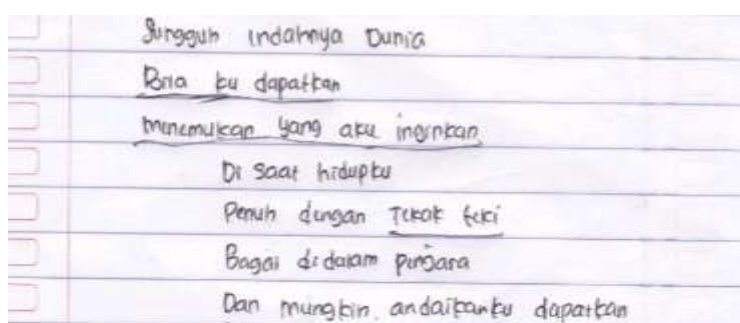 Sungguh indahnya Dunia
Bila ku dapatkan
menemukan yang aku inginkan
Di saat hidupku
Penuh dengan Tekak teki
Bagai didalam penjara
Dan mungkin andaikanku dapatkan